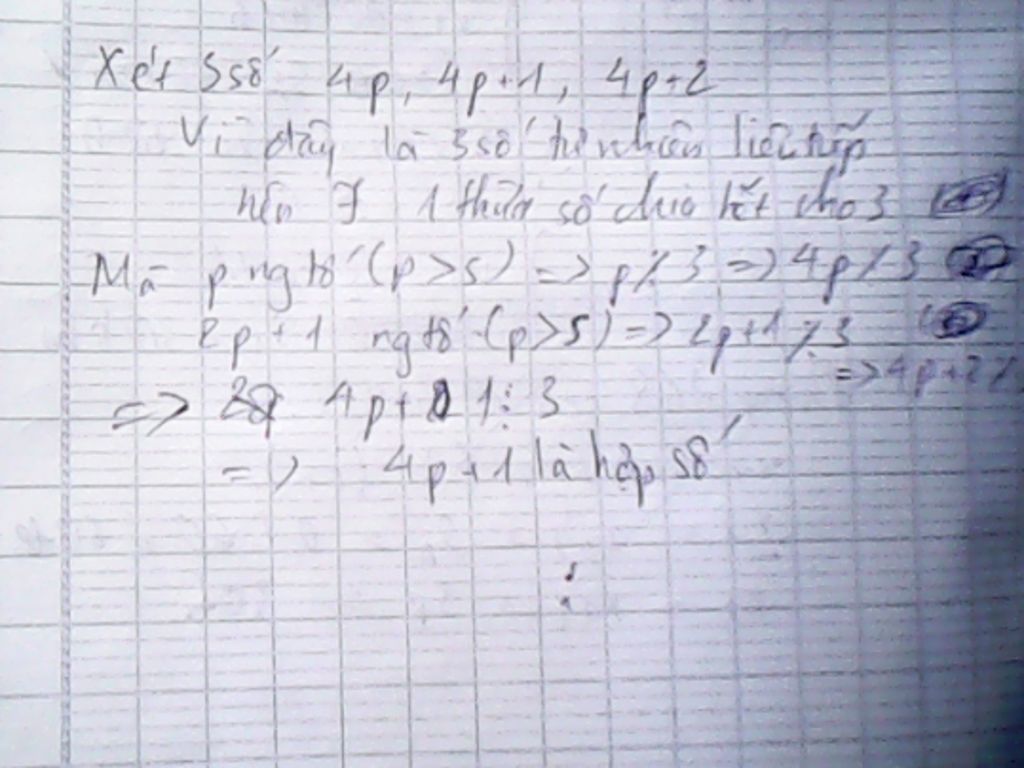 Xét 3 số 4p, 4p+1, 4p+2
Vì đây là 3 số tự nhiên liên tiếp
nên ∃ 1 thừa số chia hết cho 3
Mà p ng tố (p>5) => p⋮̸3 => 4p⋮̸3
2p+1 ng tố (p>5) => 2p+1⋮̸3
=> 4p+2⋮̸
=> 4p+1⋮3
=> 4p+1 là hợp số